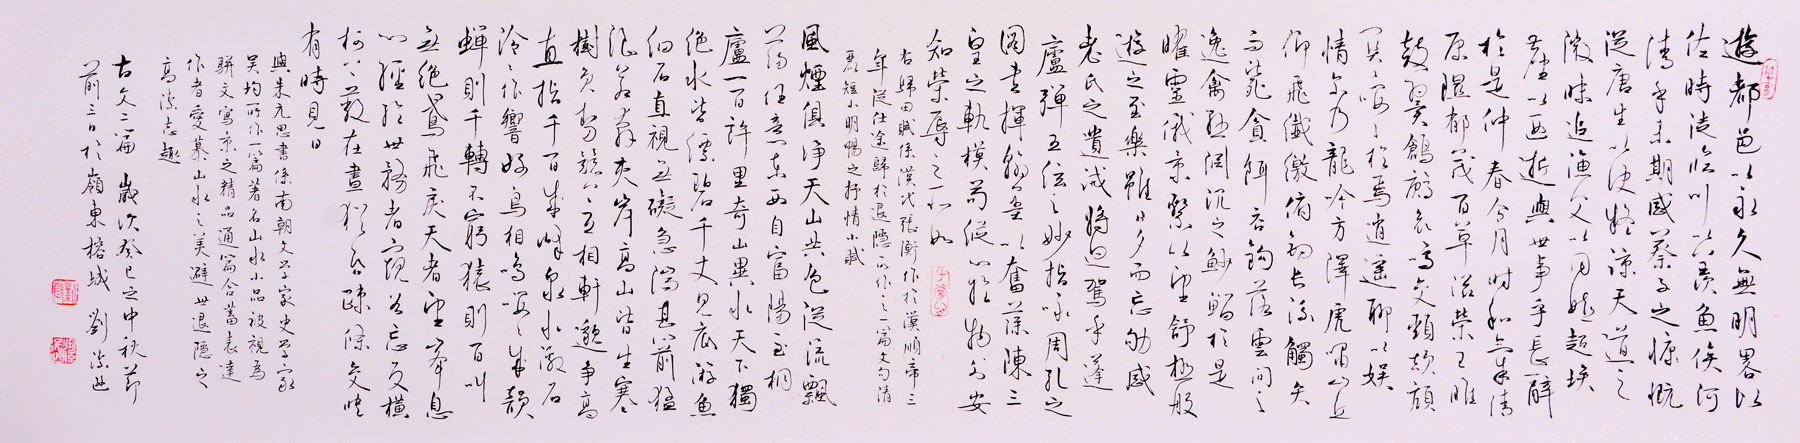 遊都邑以永久無明略以
佐時徒臨川以羨魚俟河
清乎未期感蔡子之慷慨
從唐生以決疑諒天道之
微昧追漁父以同嬉超埃
塵以遐逝與世事乎長辭
於是仲春令月時和氣清
原隰郁茂百草滋榮王雎
鼓翼鶬鶊哀鳴交頸頡頏
關關嚶嚶於焉逍遙聊以娛
情爾乃龍吟方澤虎嘯山丘
仰飛纖繳俯釣長流觸矢
而斃貪餌吞鉤落雲間之
逸禽懸淵沉之鯊鰡於是
曜靈俄景繫以望舒極般
遊之至樂雖日夕而忘劬感
老氏之遺誡將迴駕乎蓬
廬彈五弦之妙指詠周孔之
圖書揮翰墨以奮藻陳三
皇之軌模苟縱心於物外安
知榮辱之所如
右歸田賦係漢代張衡作於漢順帝三
年從仕途歸於退隱之作之一篇文句清
麗短小明暢之抒情小賦
風煙俱淨天山共色從流飄
蕩任意東西自富陽至桐
廬一百許里奇山異水天下獨
絕水皆縹碧千丈見底游魚
細石直視無礙急湍甚箭猛
浪若奔夾岸高山皆生寒
樹負勢競上互相軒邈爭高
直指千百成峰泉水激石
泠泠作響好鳥相鳴嚶嚶成韻
蟬則千轉不窮猿則百叫
無絕鳶飛戾天者望峰息
心經綸世務者窺谷忘反橫
柯上蔽在晝猶昏疏條交映
有時見日
與朱元思書係南朝文學家史學家
吳均所作一篇著名山水小品被視為
駢文寫景之精品通篇含蓄表達
作者愛慕山水之美避世退隱之
高潔志趣
古文二篇 歲次癸巳之中秋節
前三日於嶺東榕城 劉